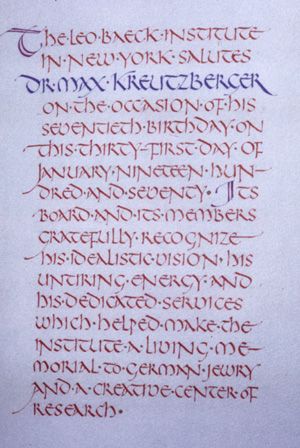 The·Leo·Baeck·Institute
in·New·York·salutes
Dr·Max·Kreutzberger
on·the·occasion·of·his
seventieth·birthday·on
this·thirty-first·day·of
January·nineteen·hun-
dred·and·seventy·Its
board·and·its·members
gratefully·recognize
his·idealistic·vision·his
untiring·energy·and
his·dedicated·services
which·helped·make·the
Institute·a·living·me-
morial·to·German·Jewry
and·a·creative·center·of
research·